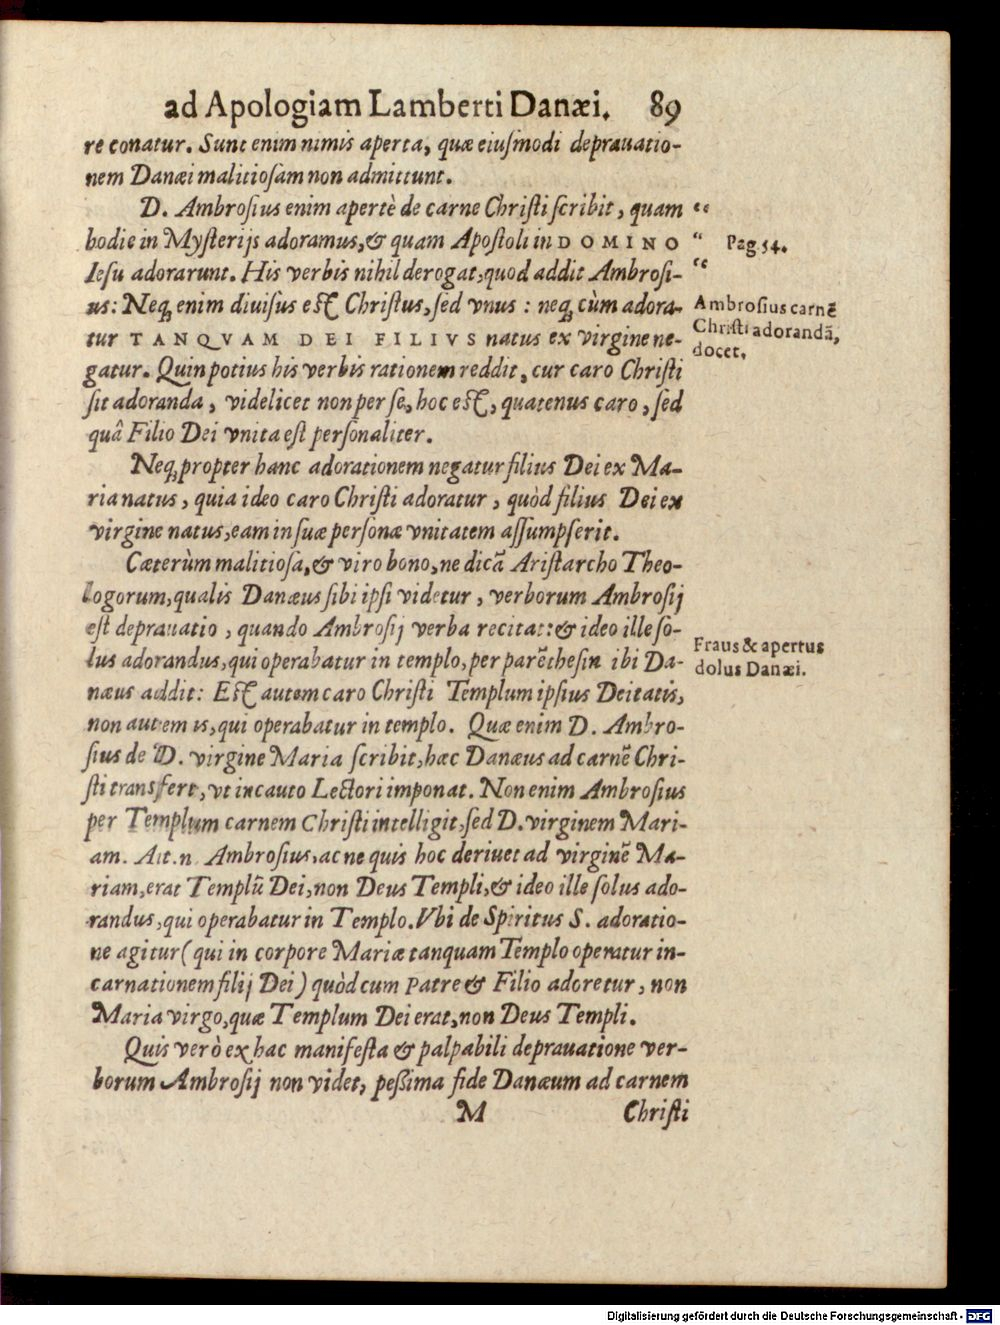 ad Apologiam Lamberti Danæi. 89
re conatur. Sunt enim nimis aperta, quæ eiusmodi deprauatio-
nem Danæi malitiosam non admittunt.
D. Ambrosius enim apertè de carne Christi scribit, quam “
hodie in Mysterijs adoramus, & quam Apostoli in DOMINO “ Pag 54.
Iesu adorarunt. His verbis nihil derogat, quod addit Ambrosi- “
us: Neq; enim diuisus est Christus, sed vnus : neq; cùm adora-
tur TANQVAM DEI FILIVS natus ex virgine ne-
gatur. Quin potius his verbis rationem reddit, cur caro Christi
sit adoranda, videlicet non per se, hoc est, quatenus caro, sed
quâ Filio Dei vnita est personaliter.
Ambrosius carnē
Christi adorandā,
docet.
Neq; propter hanc adorationem negatur filius Dei ex Ma-
ria natus, quia ideo caro Christi adoratur, quòd filius Dei ex
virgine natus, eam in suæ personæ vnitatem assumpserit.
Cæterùm malitiosa, & viro bono, ne dicā Aristarcho Theo-
logorum, qualis Danæus sibi ipsi videtur, verborum Ambrosij
est deprauatio, quando Ambrosij verba recitat: & ideo ille so-
lus adorandus, qui operabatur in templo, per parēthesin ibi Da-
næus addit: Est autem caro Christi Templum ipsius Deitatis,
non autem is, qui operabatur in templo. Quæ enim D. Ambro-
sius de D. virgine Maria scribit, hæc Danæus ad carnē Chri-
sti transfert, vt incauto Lectori imponat. Non enim Ambrosius
per Templum carnem Christi intelligit, sed D. virginem Mari-
am. Ait.n. Ambrosius, ac ne quis hoc deriuet ad virginē Ma-
riam, erat Templū Dei, non Deus Templi, & ideo ille solus ado-
randus, qui operabatur in Templo. Vbi de Spiritus S. adoratio-
ne agitur (qui in corpore Mariæ tanquam Templo operatur in-
carnationem filij Dei) quòd cum Patre & Filio adoretur, non
Maria virgo, quæ Templum Dei erat, non Deus Templi.
Fraus & apertus
dolus Danæi.
Quis verò ex hac manifesta & palpabili deprauatione ver-
borum Ambrosij non videt, pessima fide Danæum ad carnem
M Christi
Digitalisierung gefördert durch die Deutsche Forschungsgemeinschaft - DFG